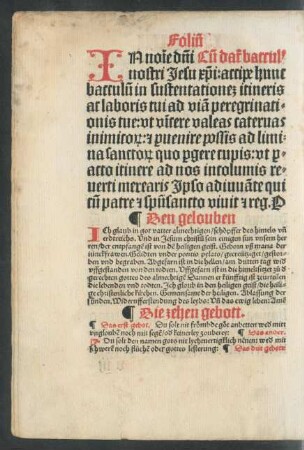 Foliũ
IN noĩe dñi Cũ daɫ bacculꝰ
nostri Jesu xp̃i: accipe hunc
bacculũ in sustentationez itineris
ac laboris tui ad viã peregrinati-
onis tue: vt vĩcere valeas caternas
inimicoꝝ: ⁊ puenire possis ad limi-
na sanctoꝝ quo pgere cupis: vt ꝑ-
acto itinere ad nos incolumis re-
uerti merearis Ipso adiuuãte qui
cũ patre ⁊ spũsancto viuit ⁊ reg. P
¶ Den gelouben
Ich glaub in got vatter almechtigen/schöpffer des himels vñ
erdtreichs. Und in Jesum christũ sein einigen sun vnsern her
ren/der entpfangẽ ist von dẽ heiligen geist. Geborn vß maria der
iunckfrawen. Gelitten vnder pontio pylato/gecreütziget/gestor-
ben vnd begraben. Abgefarn ist in die hellen/am dritten tag wid
vfferstanden von den todten. Uffgefarn ist in die himel sitzet zů d
gerechten gottes des almechtigẽ Dannen er künfftig ist zů vrteilen
die lebenden vnd todten. Ich glaub in den heiligen geist/die heili-
ge christenliche kirchen. Gemeinsame der heiligen. Ablassung der
sünden. Widervfferstendung des leybs: Uñ das ewig leben: Amẽ
¶ Die zehen gebott.
¶ Das erst gebot. Du solt nit frömbde göt anbetten weð mit
vnglaubẽ noch mit segẽ/oð keinerley zauberey: ¶ Das ander.
Du solt den namen gots nit leychenertigklich nennen weð mit
schwerẽ noch flüchẽ oder gottes lesterung: ¶ Das drit gebott